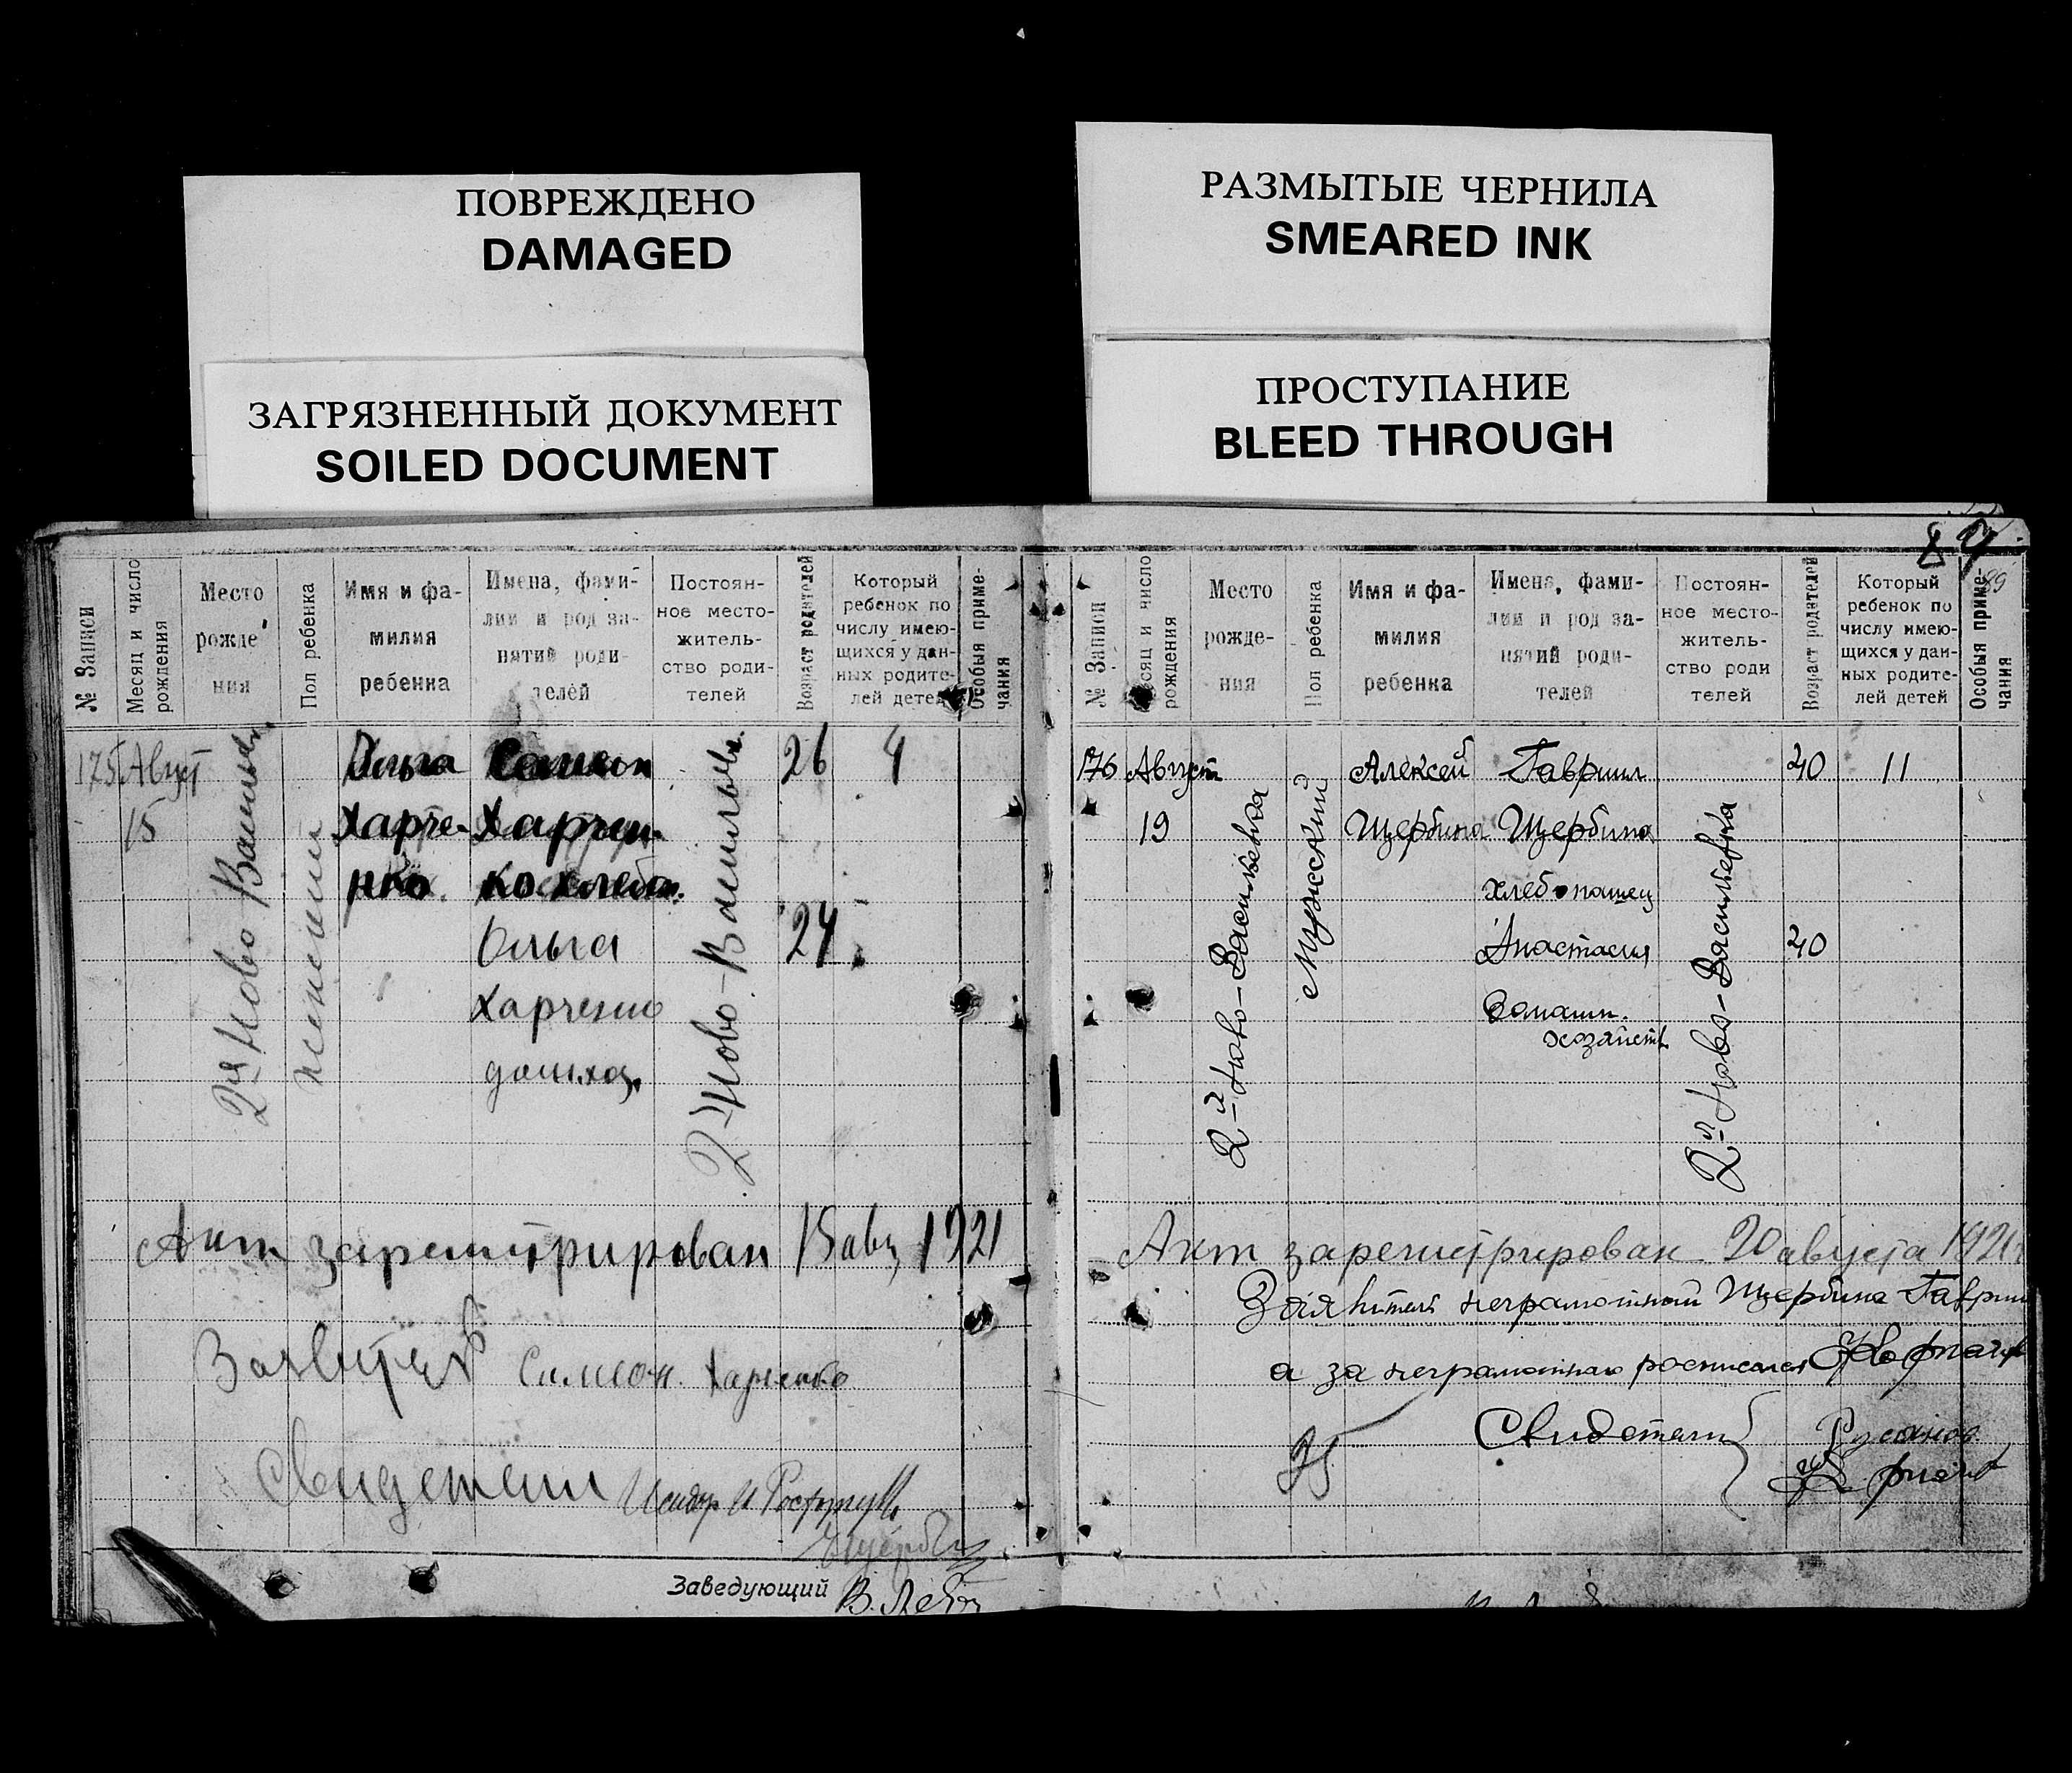 ПОВРЕЖДЕНО
DAMAGED
ЗАГРЯЗНЕННЫЙ ДОКУМЕНТ
SOILED DOCUMENT
РАЗМЫТЫЕ ЧЕРНИЛА
SMEARED INK
ПРОСТУПАНИЕ
BLEED THROUGH
№ Записи
Месяц и число
рождения
Место
рожде
ния
Пол ребенка
Имя и фа-
милия
ребенка
Имена, фами-
лии и род за-
нятий роди-
телей
Постоян-
ное место-
житель-
ство роди-
телей
Возраст родителей
Который
ребенок по
числу имею-
щихся у дан-
ных родите-
лей детей
Особыя приме-
чания
175 Август
15
2-я Ново-Васильев.
женский
Ольга
Харче-
нко
Семен
Харчен
ко хлеб
Ольга
Харченко
домхоз.
2-Ново-Васильев.
26
24
4
Акт зарегистрирован 15 авг 1921
Заявитель Симеон Харченко
Свидетели
Заведующий
89
№ Записи
есяц и число
рождения
Место
рожде-
ния
Пол ребенка
Имя и фа-
милия
ребенка
Имена, фами-
лии и род за-
нятий роди-
телей
Постоян-
ное место-
житель-
ство роди
телей
Возраст родителей
Который
ребенок по
числу имею-
щихся у дан-
ных родите-
лей детей
Особыя приме-
чания
176 Август
19
2-я Ново-Васильевка
Мужский
Алексей
Щербина
Гавриил
Щербина
хлебопашец
Анастасия
Домашн.
хозяйств
2-я Ново-Васильевка
40
40
11
Акт зарегистрирован 20 августа 1921
Заявитель неграмотный Щербина Гаврии
а за неграмотнаго росписался
Свидетели
Русанов